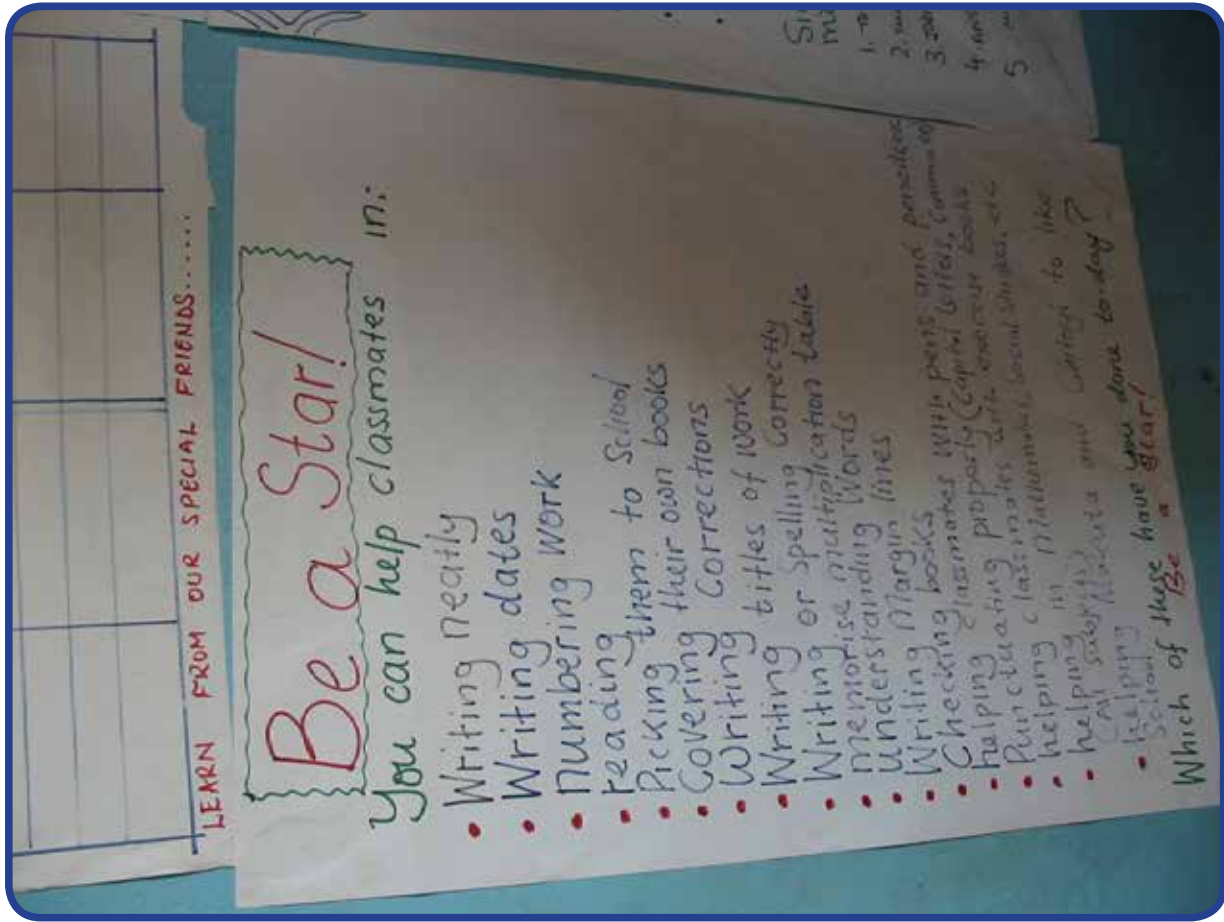 LEARN FROM OUR SPECIAL FRIENDS......
Be a Star!
You can help classmates in:
• Writing neatly
• Writing dates
• numbering work
• reading
• Picking them to School
• Covering their own books
• Writing Corrections
• Writing titles of work
• Writing or Spelling Correctly
• memorise multiplication table
• understanding Words
• Writing Margin lines
• Checking books
• helping Classmates with pens and pencils
• Punctuating properly (Capital letters, Comma
• helping classmates with exercise books
• helping in mathematics, Social Studies, etc
(All subjects)
• helping and to like
School
Which of these have you done to-day?
Be a Star!
1.
2.
3.
4.
5